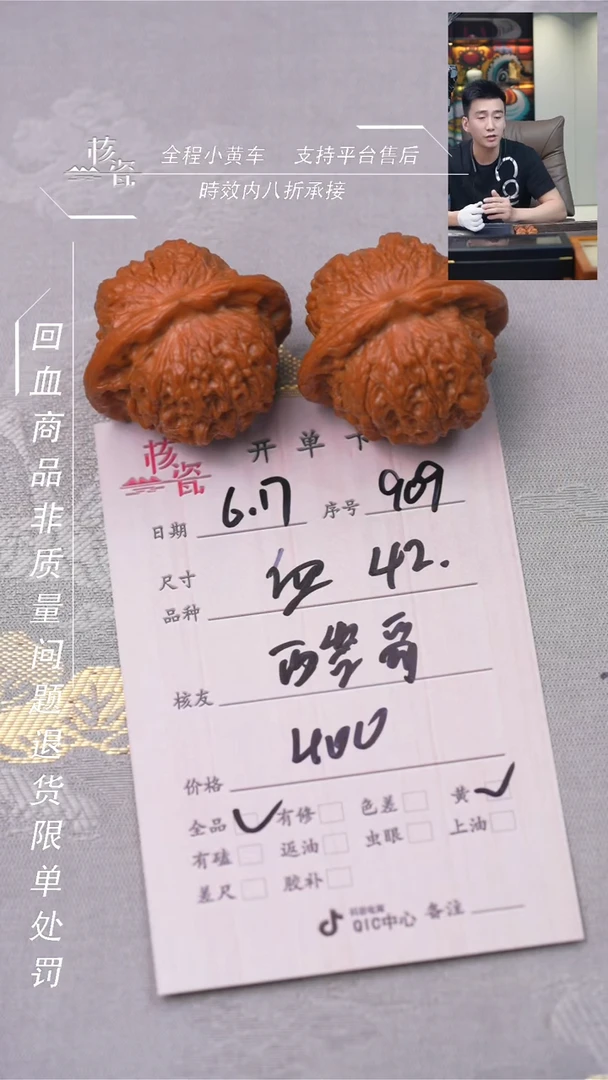 核瓷
全程小黄车 支持平台售后
時效内八折承接
回血商品非质量问题退货限单处罚
核瓷
开单卡
日期 6.17 序号 909
尺寸
品种 42.
核友
价格 400
全品 有修 色差 黄
有磕 返油 虫眼 上油
差尺 胶补
抖音电商
QIC中心 备注